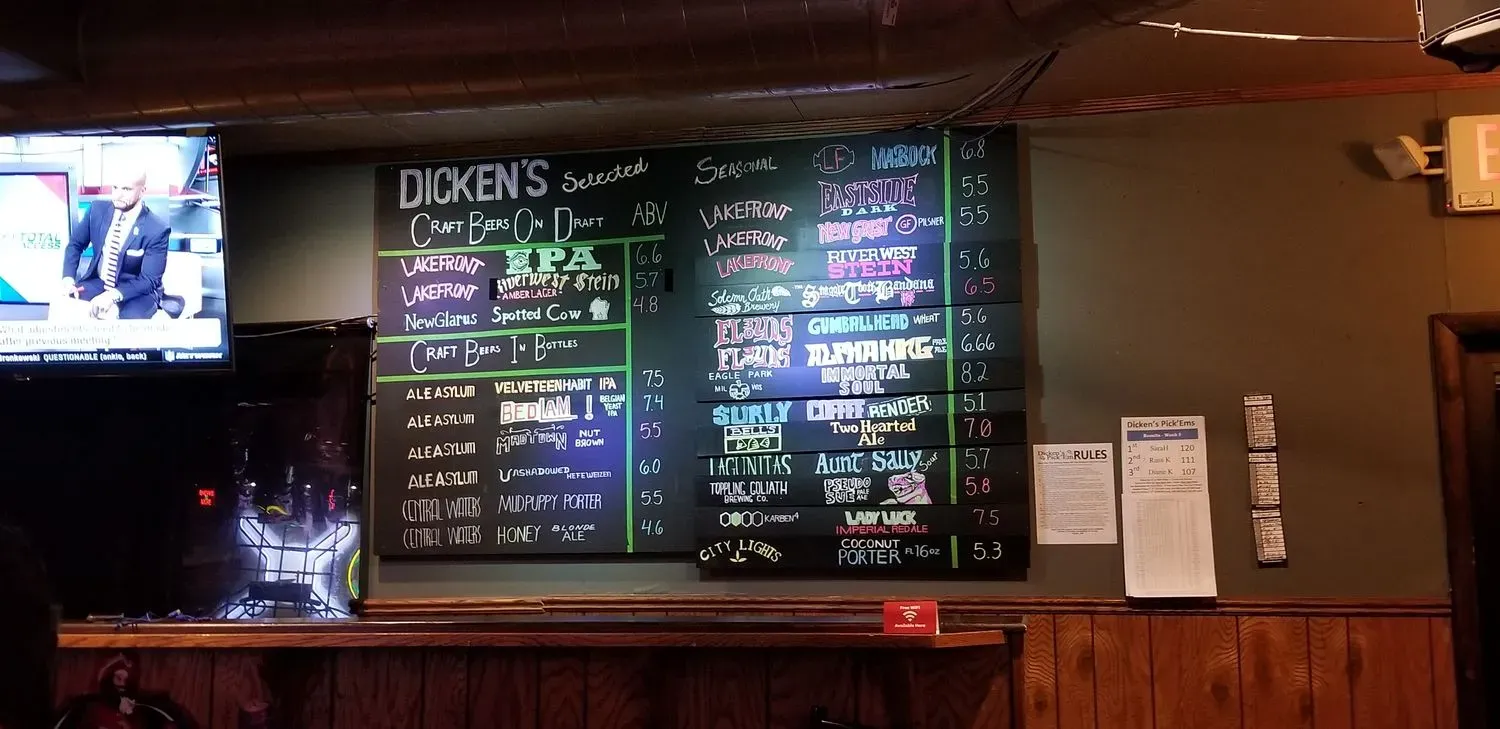 DICKEN'S Selected
CRAFT BEERS ON DRAFT ABV
LAKEFRONT IPA 6.6
LAKEFRONT Riverwest Stein AMBER LAGER 5.7
NewGlarus Spotted Cow 4.8
CRAFT BEERS IN BOTTLES
ALE ASYLUM VELVETEEN HABIT IPA 7.5
ALE ASYLUM BEDLAM! BELGIAN YEAST IPA 7.4
ALE ASYLUM MADTOWN NUT BROWN 5.5
ALE ASYLUM UNSHADOWED HEFEWEIZEN 6.0
CENTRAL WATERS MUDPUPPY PORTER 5.5
CENTRAL WATERS HONEY BLONDE ALE 4.6
SEASONAL LF MABOCK 6.8
LAKEFRONT EASTSIDE DARK 5.5
LAKEFRONT NEW GRIST GF PILSNER 5.5
LAKEFRONT RIVERWEST STEIN 5.6
Solemn Oath Brewery 6.5
FLOYDS GUMBALLHEAD WHEAT 5.6
FLOYDS ALPHA KING PALE ALE 6.66
EAGLE PARK IMMORTAL SOUL 8.2
SURLY COFFEE BENDER 5.1
BELL'S Two Hearted Ale 7.0
LAGUNITAS Aunt Sally Sour 5.7
TOPPLING GOLIATH BREWING CO. PSEUDO SUE PALE ALE 5.8
KARBEN4 LADY LUCK IMPERIAL RED ALE 7.5
CITY LIGHTS COCONUT PORTER 16oz 5.3
TOTAL ACCESS
after previous meeting?
QUESTIONABLE (ankle, back)
RULES
Dicken's Pick'Ems
Results - Week 5
1st Sara H 120
2nd Rami K 111
3rd Diane K 107
Free WiFi
Available Here
E